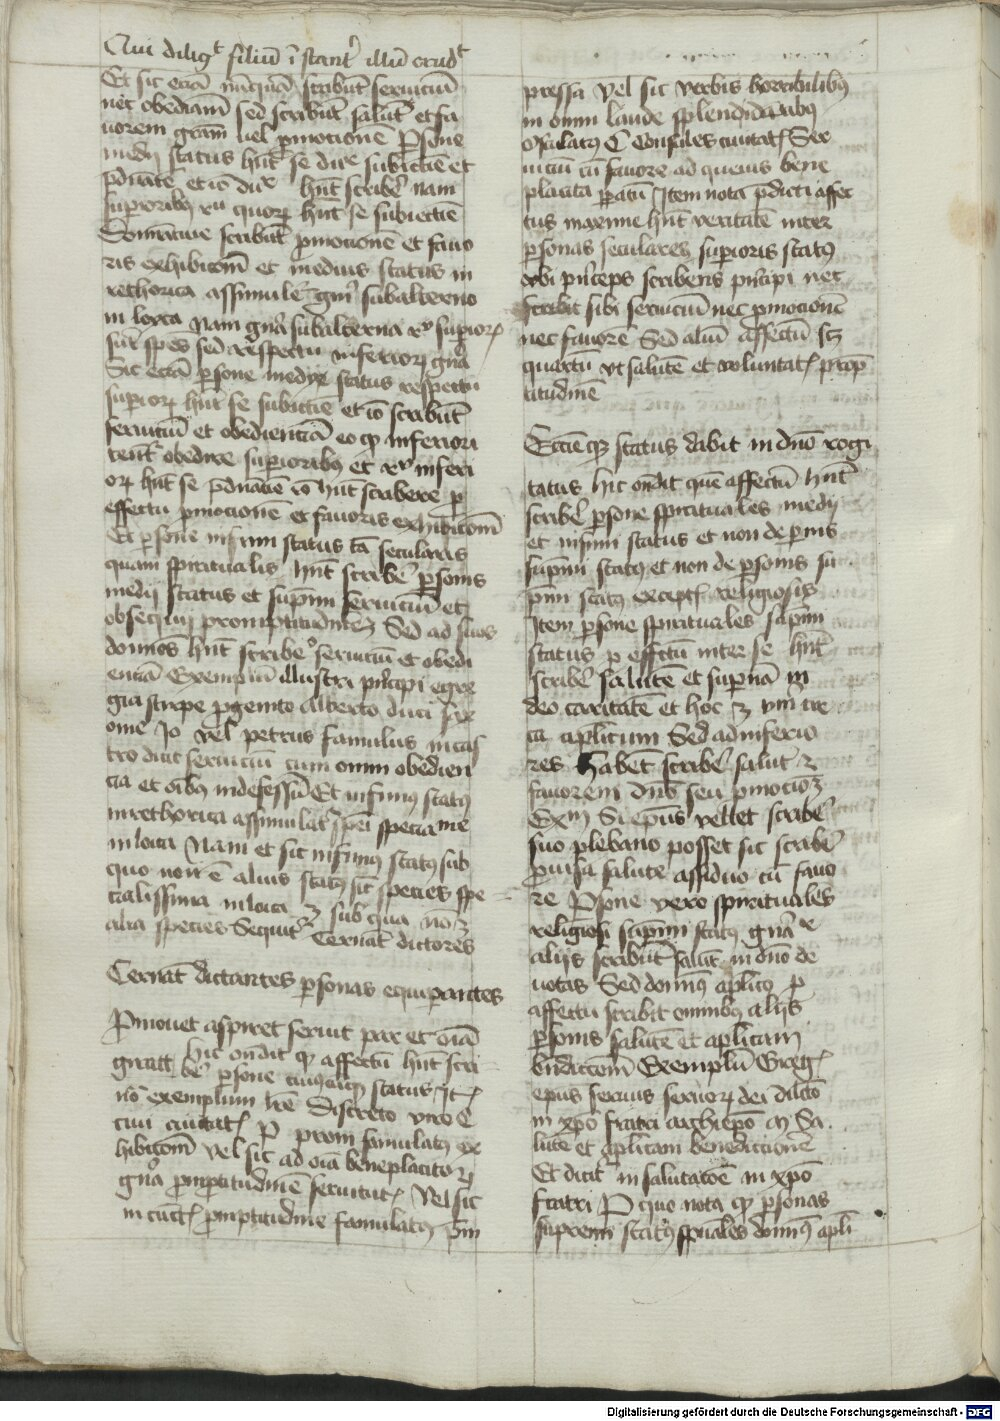 Qui diligt filiū īstant' illū erudt
Et sic eciā nūcquā scribūt seruiciū
nec obediam sed scribūt salutē et fa
uorem grām uel pmocionē Psone
medij status hnt se diu' subiectiē et
et iō diu' hnt scribe' nam
supioribꝫ quoꝝ hnt se subiectiē
scribūt pmocionē et fauo
ris exhibicōm et medius status in
rethorica assimulē' gn'i subalterno
in loyca Nam gn'a subalterna supioꝝ
sūt spes sed respectu inferioꝝ gn'a
Sic eciā psone medij status respectu
supioꝝ hnt se subiectiē et iō scribūt
seruiciū et obedienciā eo qꝫ inferiori
tent' obedire supioribꝫ et inferi
oꝝ hnt se iō hnt scribere p
effectu pmocionē et fauoris exhibicōm
Et psone infimi status tā seculares
quam spiritualis hnt scribe' psonis
medij status et supmi seruiciū et
obsequij promptitudinem Sed ad suos
domnōs hnt scribe' seruiciū et obedi
enciā Exemplū illustri pncipi egre
gia stirpe pgenito alberto duci sax
onie Jo vel petrus famulus in cas
tro diuc seruiciū cum omni obedien
cia et oībꝫ indefessū Et infimꝫ statꝫ
in rethorica assimulat' spēi specialime
in loica Nam et sic infimꝫ statꝫ sub
quo non ē alius statꝫ sic species spe
cialissima in loica ꝫ sub qua nō ꝫ
alia species Sequit' Cernāt dictores
Cernāt dictantes psonas equipantes
Pmouet aspiret seruit pax et oīa
gratt hic ondit qꝫ affectū hnt scri
be' psone cuiuscūqꝫ status It
nō exemplum hē' Discreto viro C
ciui ciuitatꝭ P prom famulatꝫ ex
hibicōm vel sic ad oīa beneplacitoꝝ
gn'a pmptitudinē seruitutꝭ Vel sic
in cūctꝭ pmptitudine famulatꝫ pm
pressa vel sic verbis horribilibꝫ
in omni laude splendidantibꝫ
C Consules ciuitatꝭ Ser
uiciū cū fauore ad queuis bene
placita patū Item nota pdicti affec
tus maxime hnt veritatē inter
psonas seculares supioris statꝫ
vbi pnceps scribens pncipi nec
scribit sibi seruiciū nec pmocionē
nec fauorē Sed aliū affectū scꝫ
quartū vt salutē et voluntatꝭ pmp
titudinē
status dabit in dno rogi
tatus hic ondit quē affectū hnt
scribe' psone spirituales medij
et infimi status et non de pmis
supmi statꝫ et non de psonis su
pmi statꝫ exceptꝭ religiosis
Item psone spirituales supmi
status p effectū inter se hnt
scribe' salutē et supnā in
deo caritatē et hoc ꝫ
aplicum Sed ad inferio
res habēt scribe' salutē
fauorem dnō seu pmocioꝫ
Exm Si epūs vellet scribe'
suo plebano posset sic scribe'
pmissa salute assiduo cū fauo
re Psone vero spirituales
religiosi supmi statꝫ
alijs scribūt salutē in dno de
uotas Sed dominꝫ aplicꝫ p
affectu scribit omnibꝫ alijs
psonis salutē et aplicam
bndiccōm Exemplū Gregꝭ
epus seruus seruoꝝ dei dilcō
in xpō fratri archiepō Sa
lutē et aplicam benedictionē
Et dicit' in salutacōe in xpō
fratri P quo nota qꝫ psonas
supremi statꝫ spūales dominꝫ apli
Digitalisierung gefördert durch die Deutsche Forschungsgemeinschaft - DFG